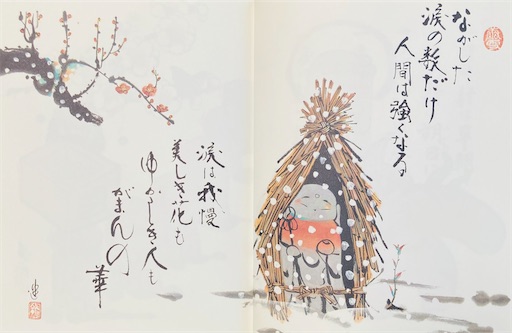 ながした
涙の数だけ
人間は強くなる
涙は我慢
美しき花も
ゆかしき人も
がまんの
華